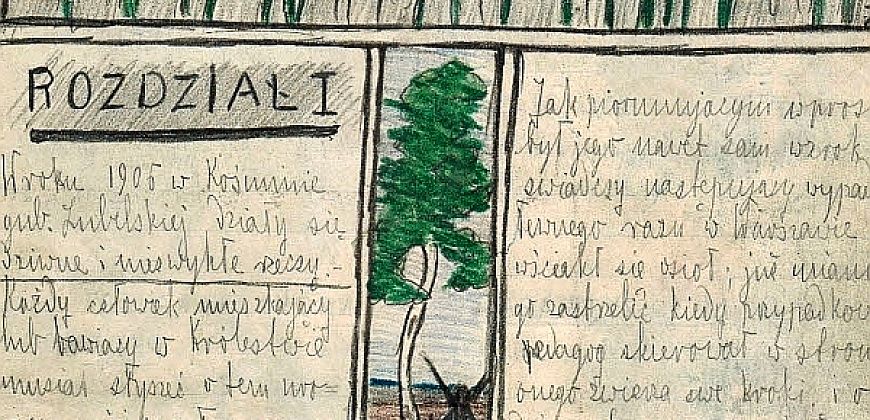 ROZDZIAŁ I
W roku 1905 w Kośminie
gub. Lubelskiej działy się
dziwne i niezwykłe rzeczy.-
Każdy człowiek mieszkający
lub bawiący w Królestwie
musiał słyszeć o tem
Jak piorunującym wpros
był jego nawet sam wzrok
świadczy następujący wypa
Pewnego razu w Warszawie
wściekł się osioł; już miano
go zastrzelić kiedy przypadkow
pedagog skierował w stron
onego zwierza swe kroki, i o